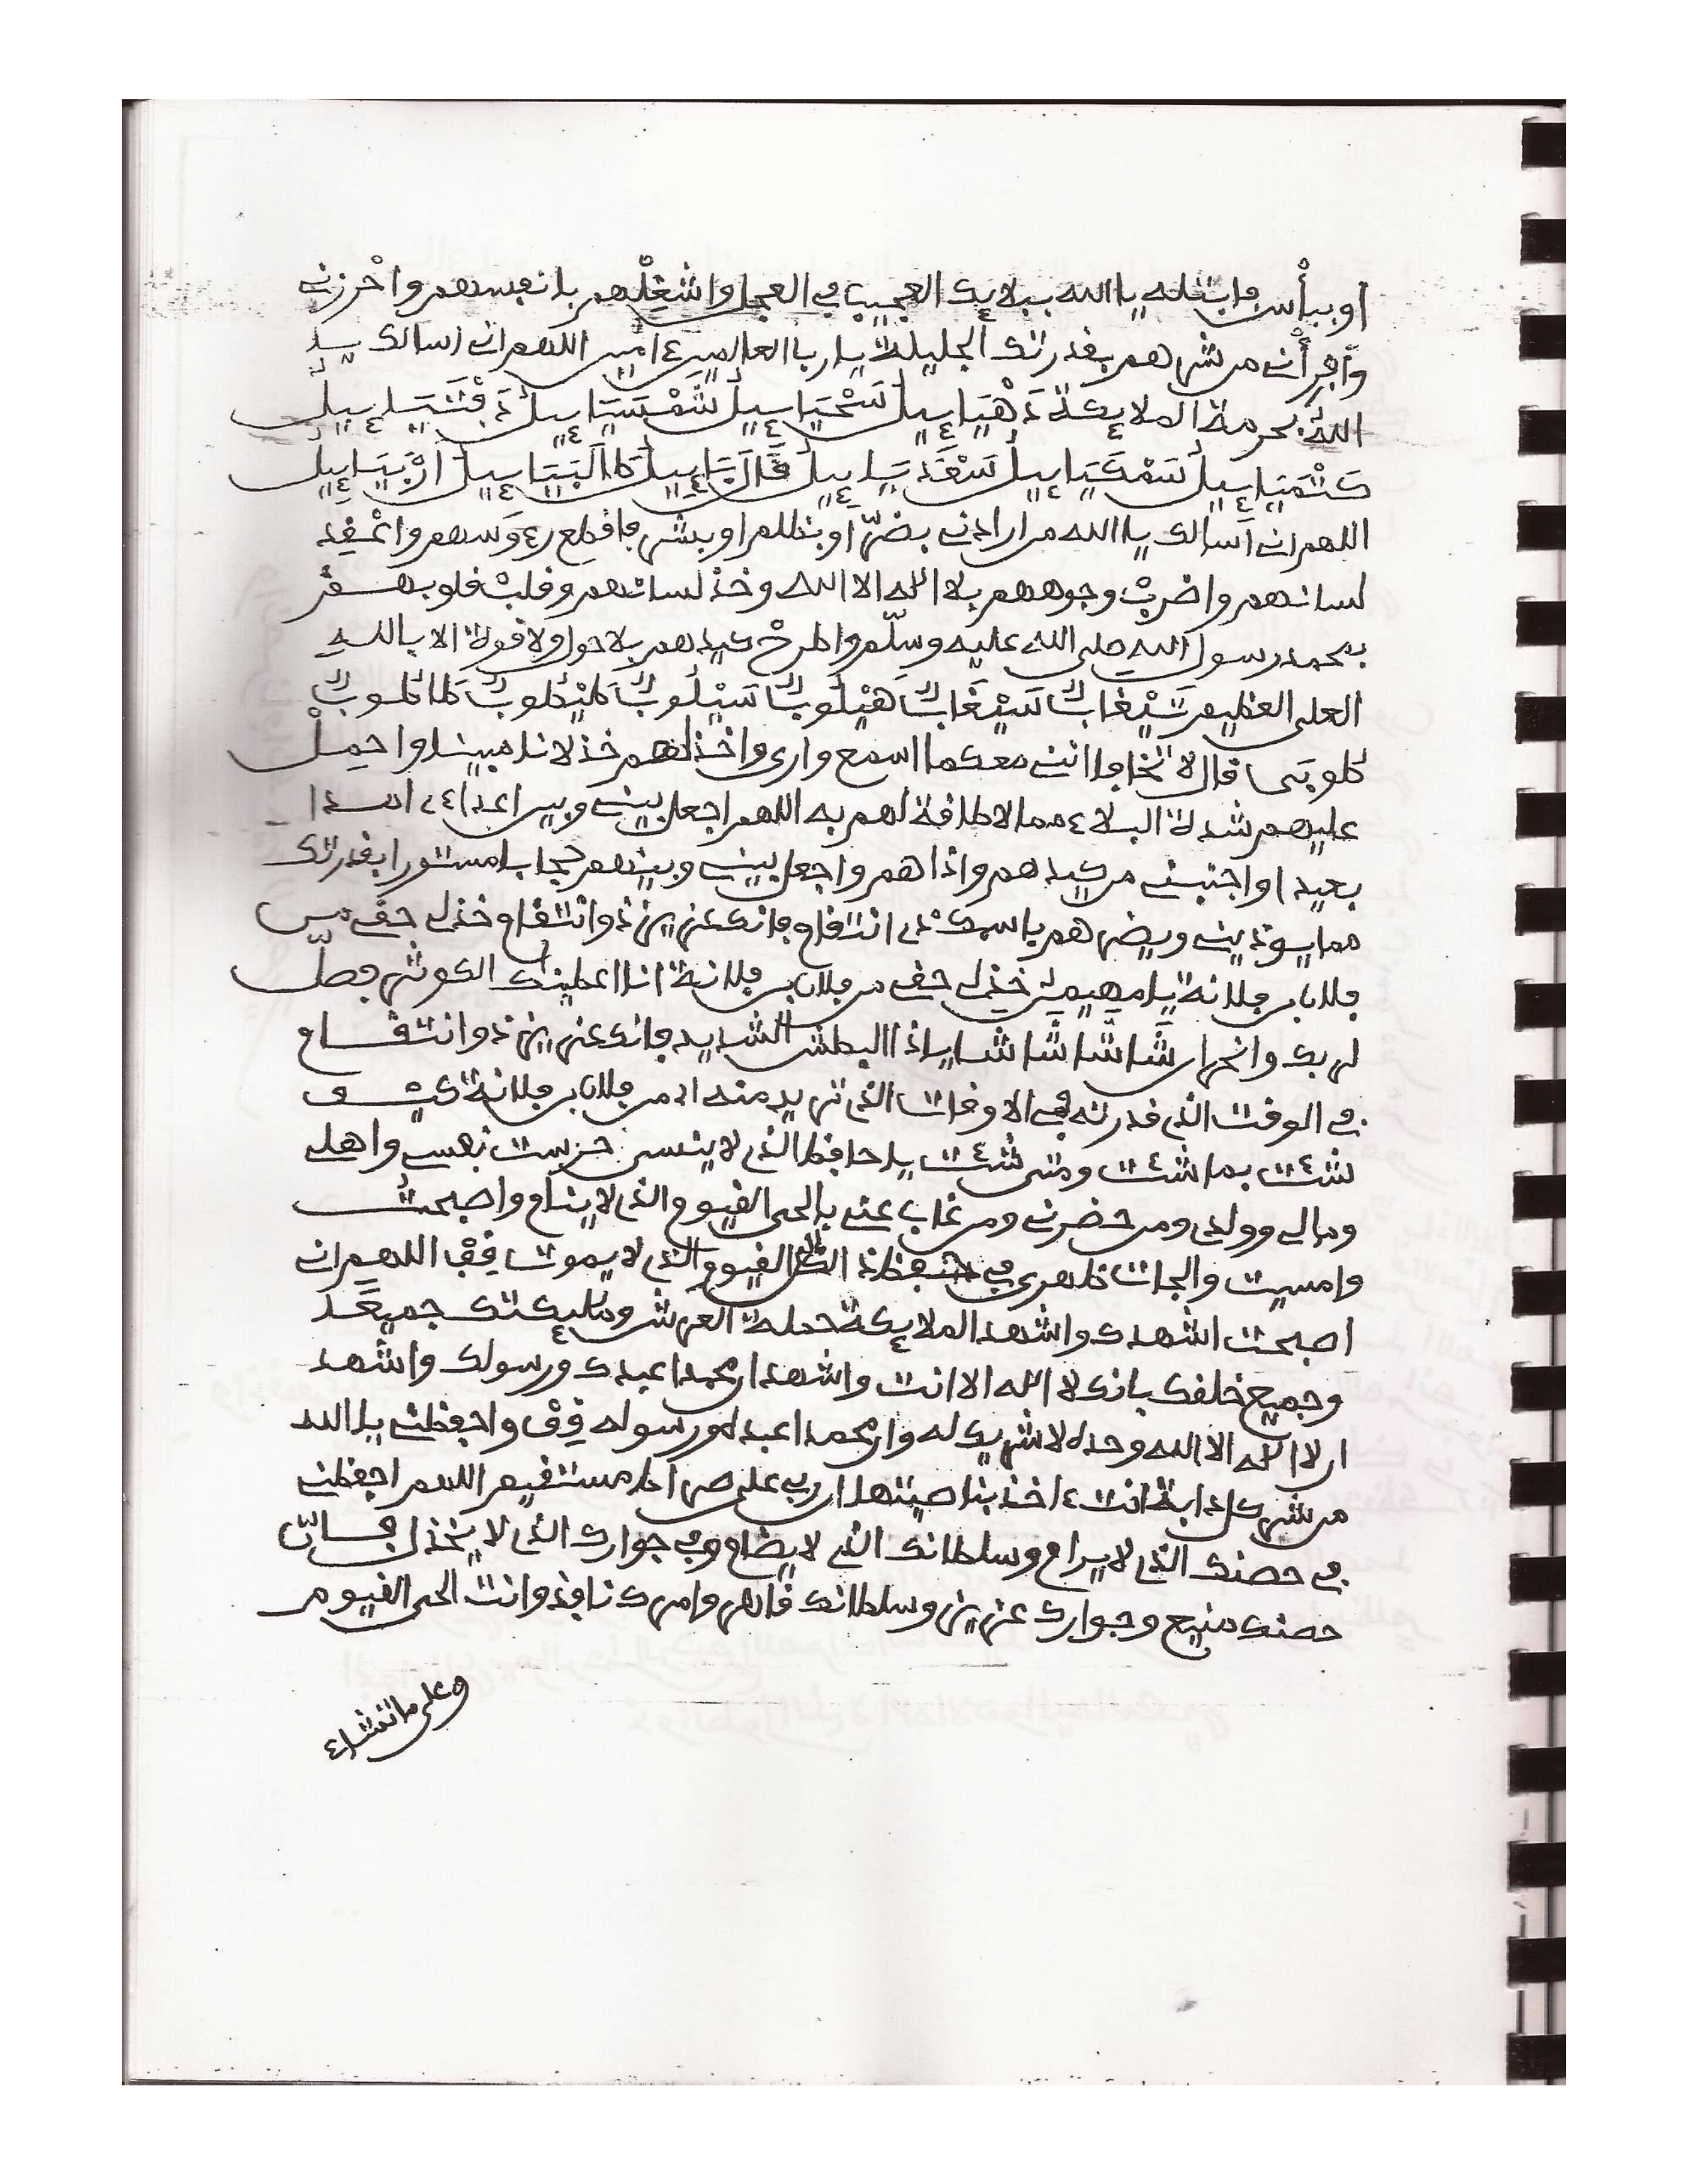 او ببأس فابتله يا الله ببلايك العجيب في العجل واشغلهم بانفسهم واحرزني
وافرأني من شرهم بقدرتك الجليلة يا رب العالمين ءامين اللهم اني اسالك يا
الله بحرمة الملايكة دَهْيَاييل سَحْيَاييل شَمْسَيَاييل
كَشْمَيَاييل سَمْكَيَاييل
اللهم اني اسالك يا الله من ارادني بضرّ او بظلم او بشر فاقطع رءوسهم واعقد
لسانهم واضرب وجوههم بلا اله الا الله وخذ لسانهم وقلب قلوبهم
بمحمد رسول الله صلى الله عليه وسلّم واطرح كيدهم بلا حول ولا قوة الا بالله
العلي العظيم هَيْلُوبٌ سَيْلُوبٌ
قال لا تخافا انني معكما اسمع وارى واخذلهم خذلانا مبينا واحمل
عليهم شدة البلاء مما لا طاقة لهم به اللهم اجعل بيني وبين اعداءي
بعيدا واجنبني من كيدهم واذاهم واجعل بيني وبينهم حجابا مستورا بقدرتك
مما يوذيني ويضرهم باسمك ذي انتقام فانك عزيز ذو انتقام خذلي حقي من
فلان بن فلانة يا مهيمن خذلي حقي من فلان بن فلانة انا اعطينك الكوثر فصلّ
لربك وانحر ان شا شا شا شا يا ذا البطش الشديد فانك عزيز ذو انتقام
في الوقت الذي قدرته في الاوقات الذي تريد منه اد من فلان بن فلانة كيف
شئت بما شئت ومتى شئت يا حافظ الذي لا ينسى حرست نفسي واهلي
ومالي وولدي ومن حضرني ومن غاب عني بالحي القيوم الذي لا ينام واصبحت
وامسيت والجات ظهري في حفظ الحي القيوم الذي لا يموت قف اللهم اني
اصبحت اشهدك واشهد الملايكة حملة العرش وملئكتك جميعا
وجميع خلقك بانك لا اله الا انت واشهد ان محمدا عبدك ورسولك واشهد
ان لا اله الا الله وحده لا شريك له وان محمدا عبده ورسوله قف واحفظني يا الله
من شر كل دابة انت ءاخذ بناصيتها ان ربي على صراط مستقيم اللهم احفظني
في حصنك الذي لا يرام وسلطانك الذي لا يضام وفي جوارك الذي لا يخذل فان
حصنك منيع وجوارك عزيز وسلطانك قاهر وامرك نافذ وانت الحي القيوم
وعلى ما تشاء